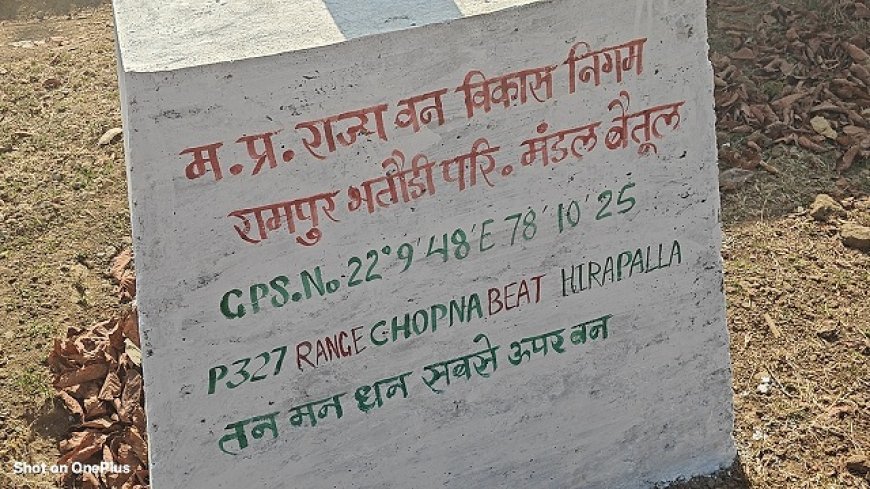 म.प्र. राज्य वन विकास निगम
रामपुर भतौडी परि. मंडल बैतूल
GPS.No. 22°9'48'E 78'10'25
P327 RANGE CHOPNA BEAT HIRAPALLA
तन मन धन सबसे ऊपर वन
Shot on OnePlus